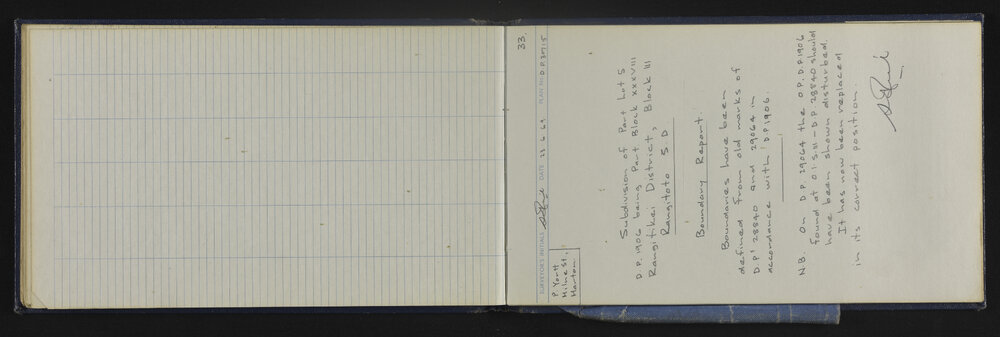 33.
SURVEYOR'S INITIALS DATE 23 6 69 PLAN No D.P. 30715
P. York
Milne St,
Marton
Subdivision of Part Lot 5
D.P. 1906 being Part Block XXXVIII
Rangitikei District, Block III
Rangitoto S D
Boundary Report.
Boundaries have been
defined from old marks of
D.P.s 28840 and 29064 in
accordance with D.P. 1906.
N.B. On D.P. 29064 the O.P. D.P. 1906
found at 0 1.S. III - D.P. 28840 should
have been shown disturbed.
It has now been replaced
in its correct position.